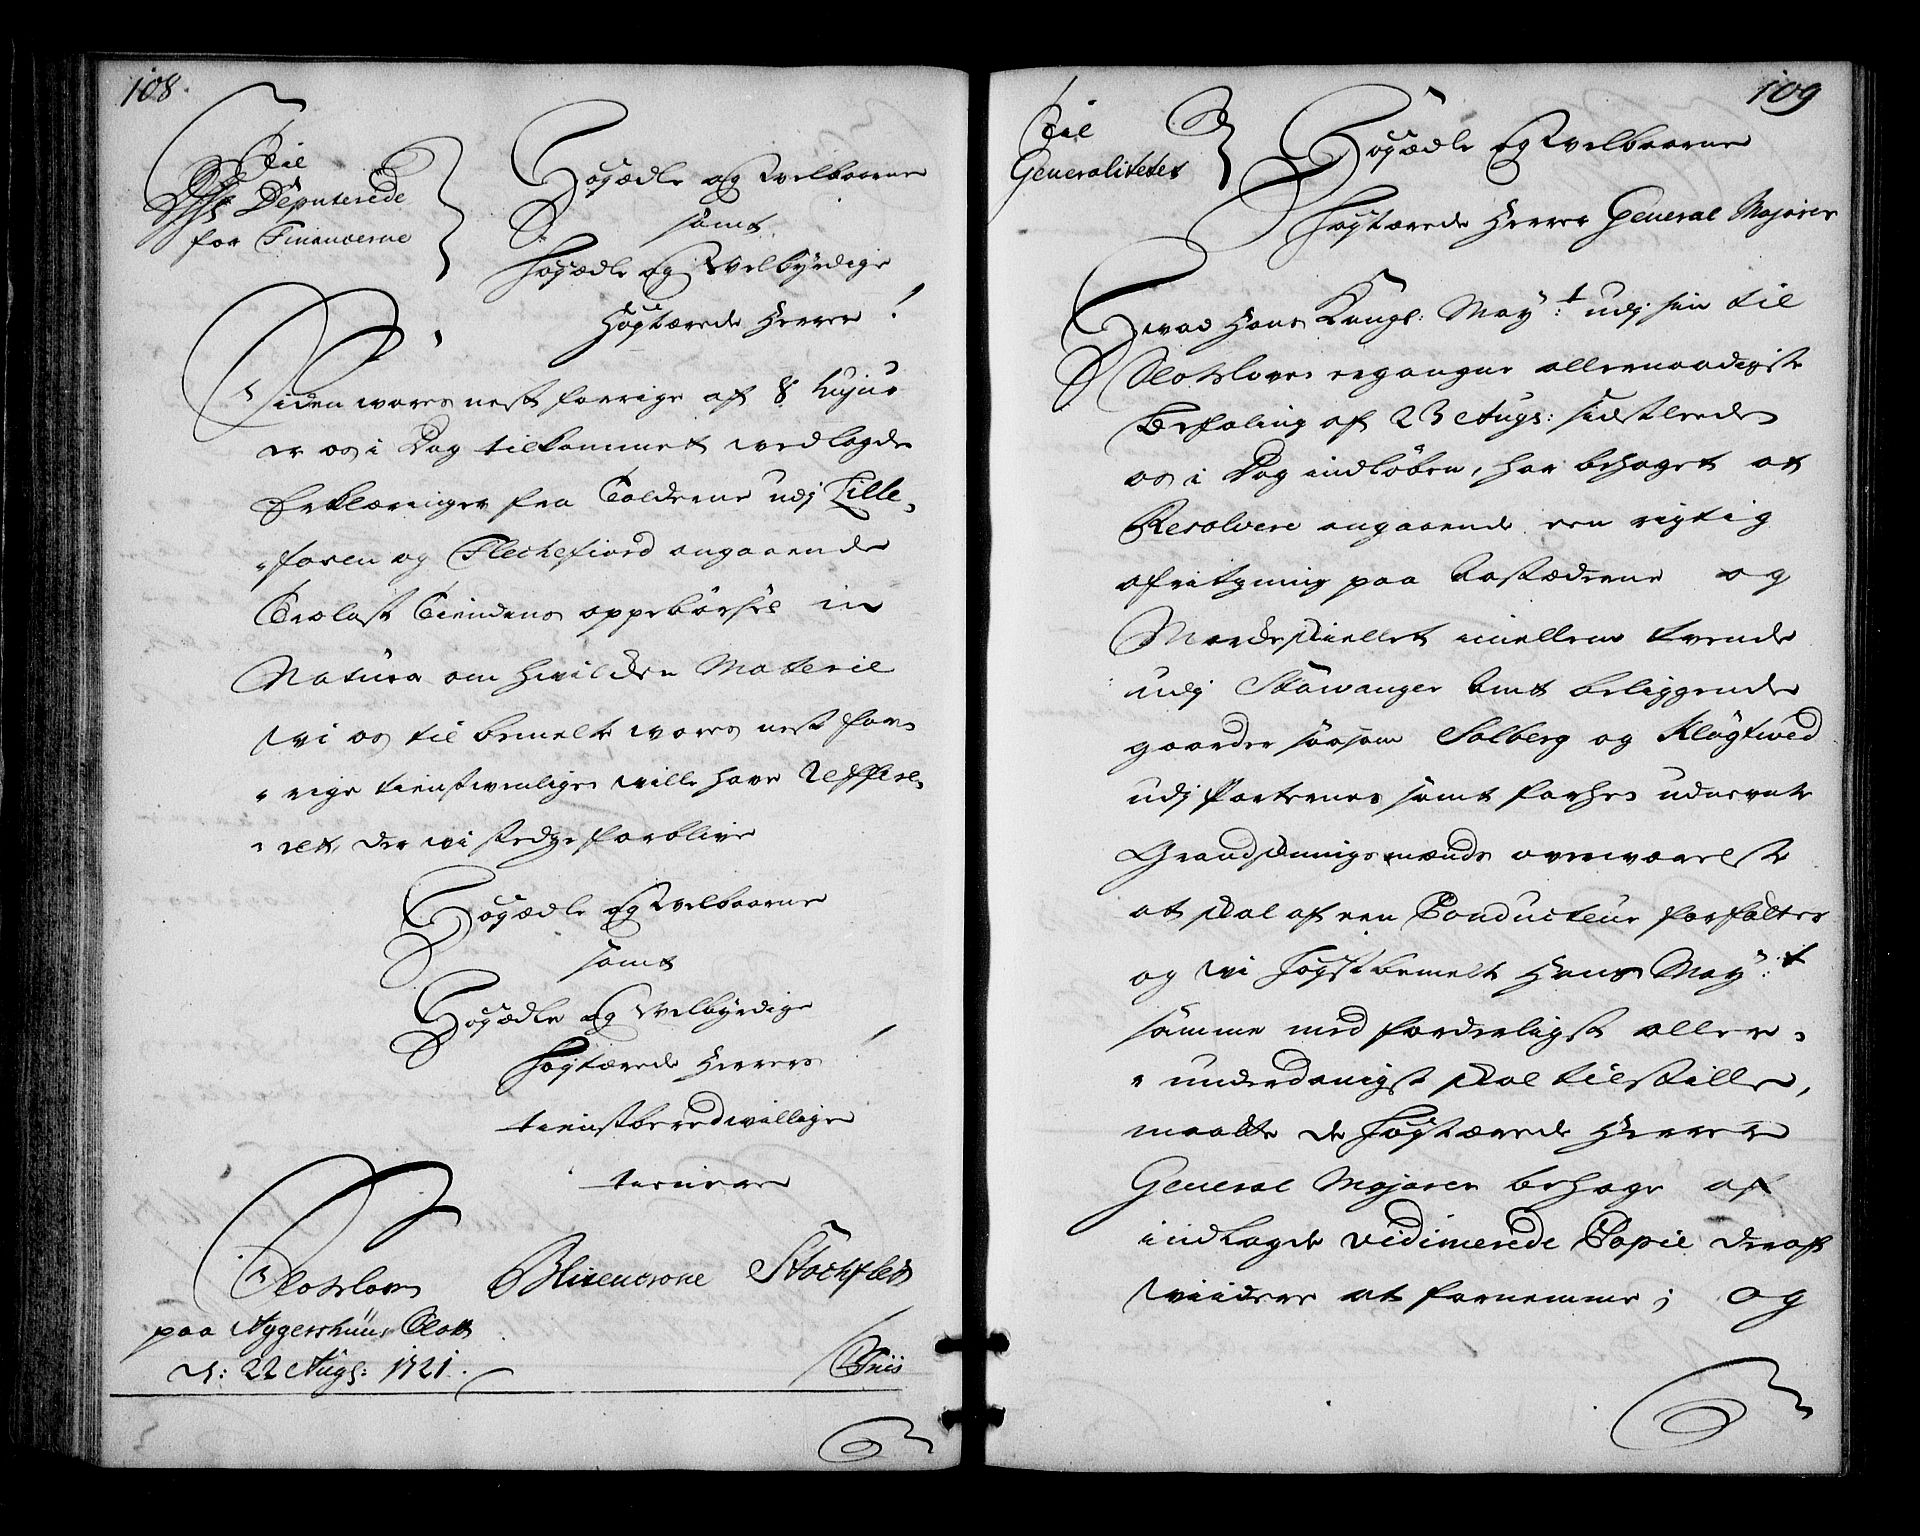 108.
Til
Deputerede
for Financerne
Høgædle og Velbaarne
samt
Høgædle og Velbyrdige
Høgtærede Herrer!
Siden vores nest forrige af 8 hujus
er os i Dag tilkommet vedlagde
Erklæringer fra Tolderne udj Lille-
"sosen og Flechefiord angaaende
Trælast Tiendens oppebørsel in
Natura om hvilcken Materie
vi os til bemelte vores nest for-
"rige tienstvenlige ville have Reffere-
"rett, der vi stedze forblive
Høgædle og Velbaarne
samt
Høgædle og Velbyrdige
Høgtærede Herrers!
tienstberedvillige
tienere
Slotsloven
paa Aggershuus Slott
d: 22 Augs: 1721.
Blixencrone Stochfleth
Friis
109
Til
Generalitetet
Høgædle og Velbaarne
Høgtærede Herrer General Majorer
Hvad Hans Kongl: May:t udj sin til
Slotsloven ergangne allernaadigste
Befaling af 23 Augs: sidstleeden
os i Dag indløben, har behaget at
Resolvere angaaende een rigtig
afritzning paa Aastæderne og
Mardeskiellet imellem tvende
udj Stawanger Amt beliggende
gaarder saasom Solberg og Kløgtwed
udj Parternes samt forhen udnevnte
Grandskningsmænds overværelse
at skal af een Conducteur forfattes
og vi Høgstbemelt Hans May:t
samme med forderligst aller-
"underdanigst skal tilstille,
maatte de Høgtærede Herrer
General Majorer behage af
indlagde vidimerede Copie deraf
viidere at fornemme; og